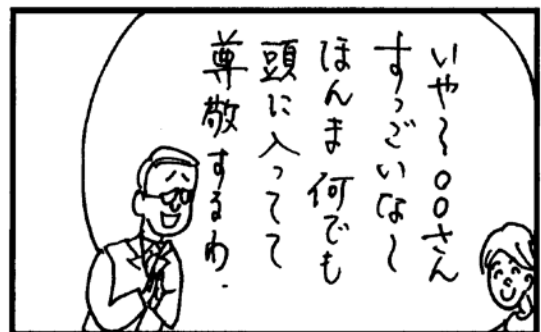 いや〜〇〇さん
すっごいな〜
ほんま何でも
頭に入ってて
尊敬するわ.